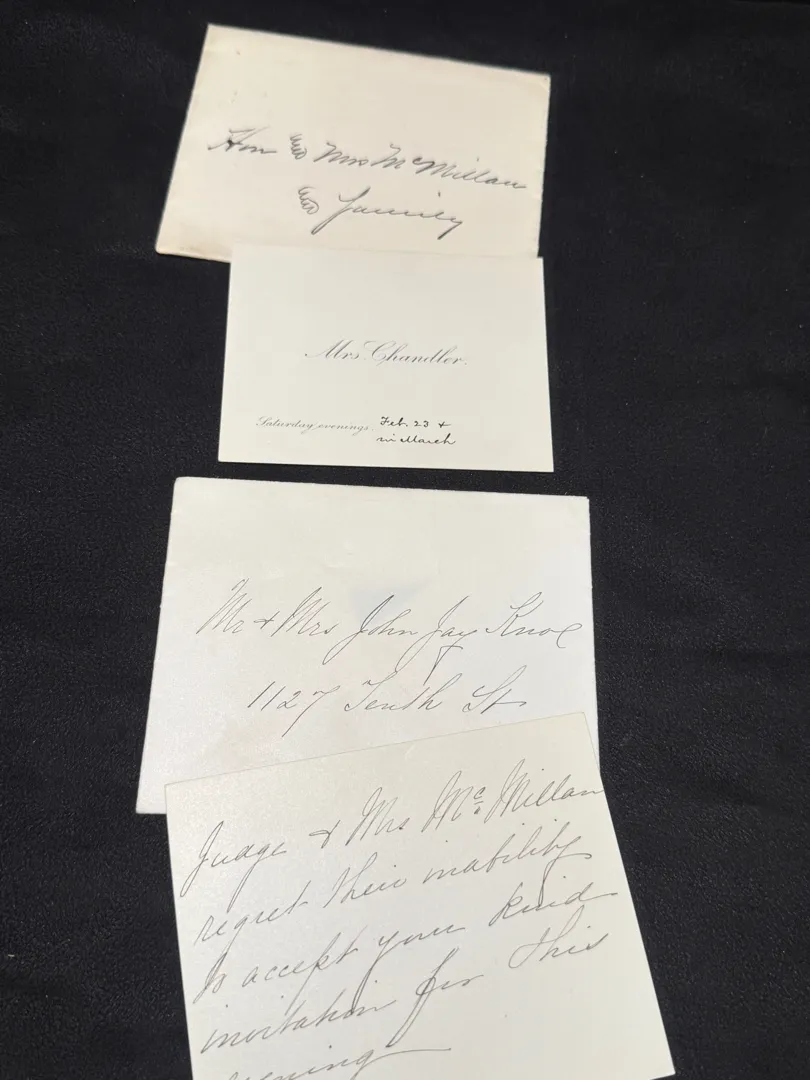 Hon and Mrs McMillan
and family
Mrs. Chandler.
Saturday evenings. Feb. 23 +
in March
Mr + Mrs John Jay Knox
1127 Tenth St
Judge + Mrs McMillan
regret their inability
to accept your kind
invitation for this
evening